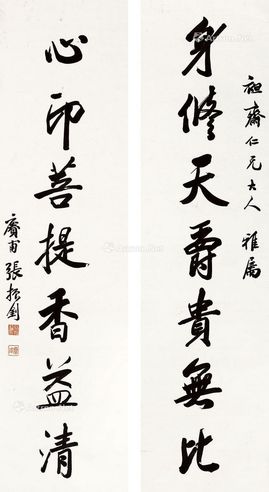 祖齋仁兄大人 雅属
身修天爵貴無比
心印菩提香益清
賡甫張振釗